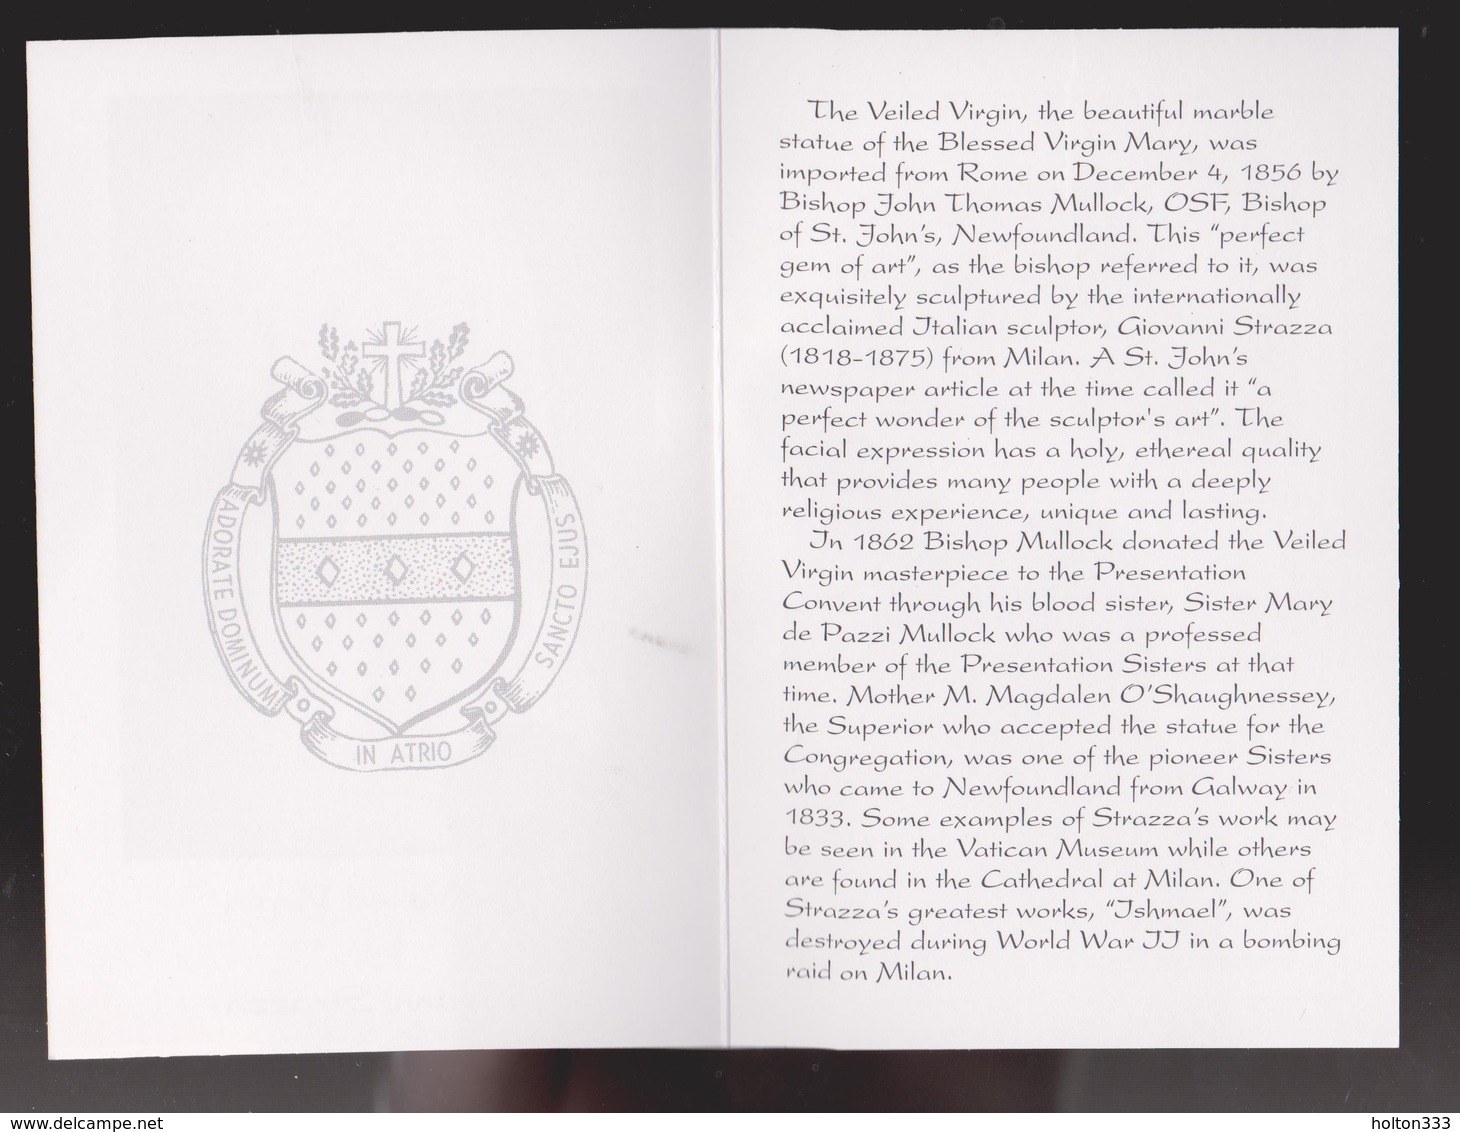 ADORATE DOMINUM
IN ATRIO
SANCTO EJUS
The Veiled Virgin, the beautiful marble
statue of the Blessed Virgin Mary, was
imported from Rome on December 4, 1856 by
Bishop John Thomas Mullock, OSF, Bishop
of St. John's, Newfoundland. This "perfect
gem of art", as the bishop referred to it, was
exquisitely sculptured by the internationally
acclaimed Italian sculptor, Giovanni Strazza
(1818-1875) from Milan. A St. John's
newspaper article at the time called it "a
perfect wonder of the sculptor's art". The
facial expression has a holy, ethereal quality
that provides many people with a deeply
religious experience, unique and lasting.
In 1862 Bishop Mullock donated the Veiled
Virgin masterpiece to the Presentation
Convent through his blood sister, Sister Mary
de Pazzi Mullock who was a professed
member of the Presentation Sisters at that
time. Mother M. Magdalen O'Shaughnessey,
the Superior who accepted the statue for the
Congregation, was one of the pioneer Sisters
who came to Newfoundland from Galway in
1833. Some examples of Strazza's work may
be seen in the Vatican Museum while others
are found in the Cathedral at Milan. One of
Strazza's greatest works, "Ishmael", was
destroyed during World War II in a bombing
raid on Milan.
www.delcampe.net
holton333